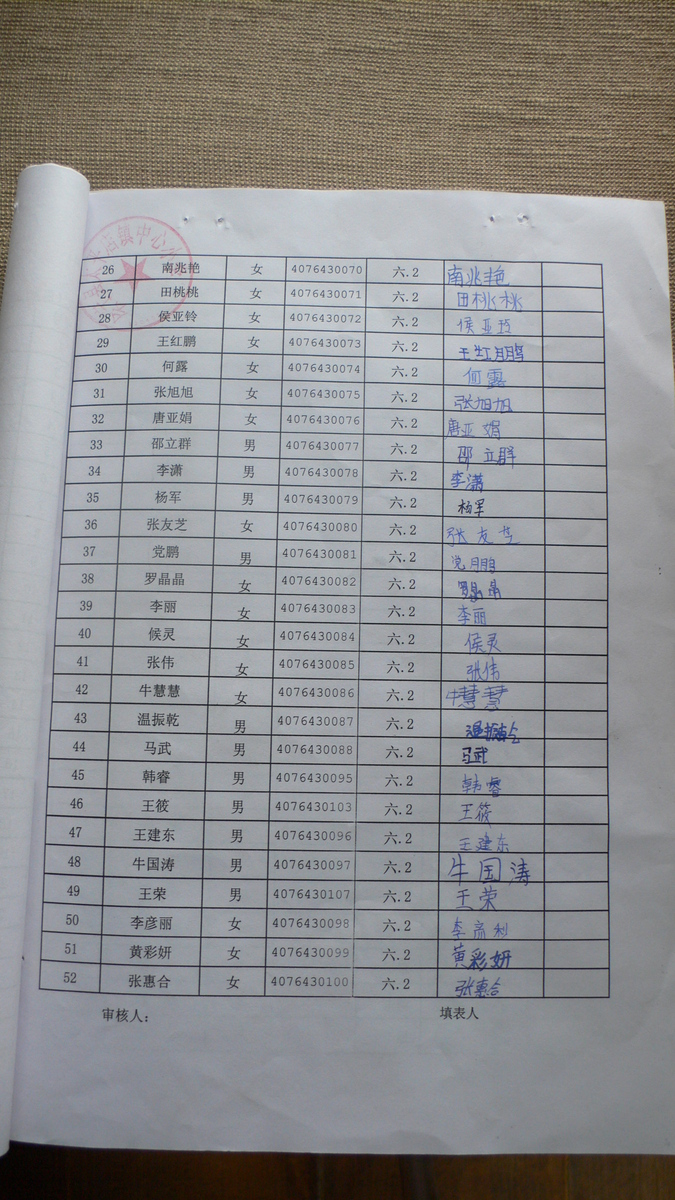 店镇中心小
26 南兆艳 女 4076430070 六.2 南兆艳
27 田桃桃 女 4076430071 六.2 田桃桃
28 侯亚铃 女 4076430072 六.2 侯亚玲
29 王红鹏 女 4076430073 六.2 王红鹏
30 何露 女 4076430074 六.2 何露
31 张旭旭 女 4076430075 六.2 张旭旭
32 唐亚娟 女 4076430076 六.2 唐亚娟
33 邵立群 男 4076430077 六.2 邵立群
34 李潇 男 4076430078 六.2 李潇
35 杨军 男 4076430079 六.2 杨军
36 张友芝 女 4076430080 六.2 张友芝
37 党鹏 男 4076430081 六.2 党鹏
38 罗晶晶 女 4076430082 六.2 罗晶晶
39 李丽 女 4076430083 六.2 李丽
40 候灵 女 4076430084 六.2 侯灵
41 张伟 女 4076430085 六.2 张伟
42 牛慧慧 女 4076430086 六.2 牛慧慧
43 温振乾 男 4076430087 六.2
44 马武 男 4076430088 六.2 马武
45 韩睿 男 4076430095 六.2 韩睿
46 王筱 男 4076430103 六.2 王筱
47 王建东 男 4076430096 六.2 王建东
48 牛国涛 男 4076430097 六.2 牛国涛
49 王荣 男 4076430107 六.2 王荣
50 李彦丽 女 4076430098 六.2 李彦利
51 黄彩妍 女 4076430099 六.2 黄彩妍
52 张惠合 女 4076430100 六.2 张惠合
审核人： 填表人